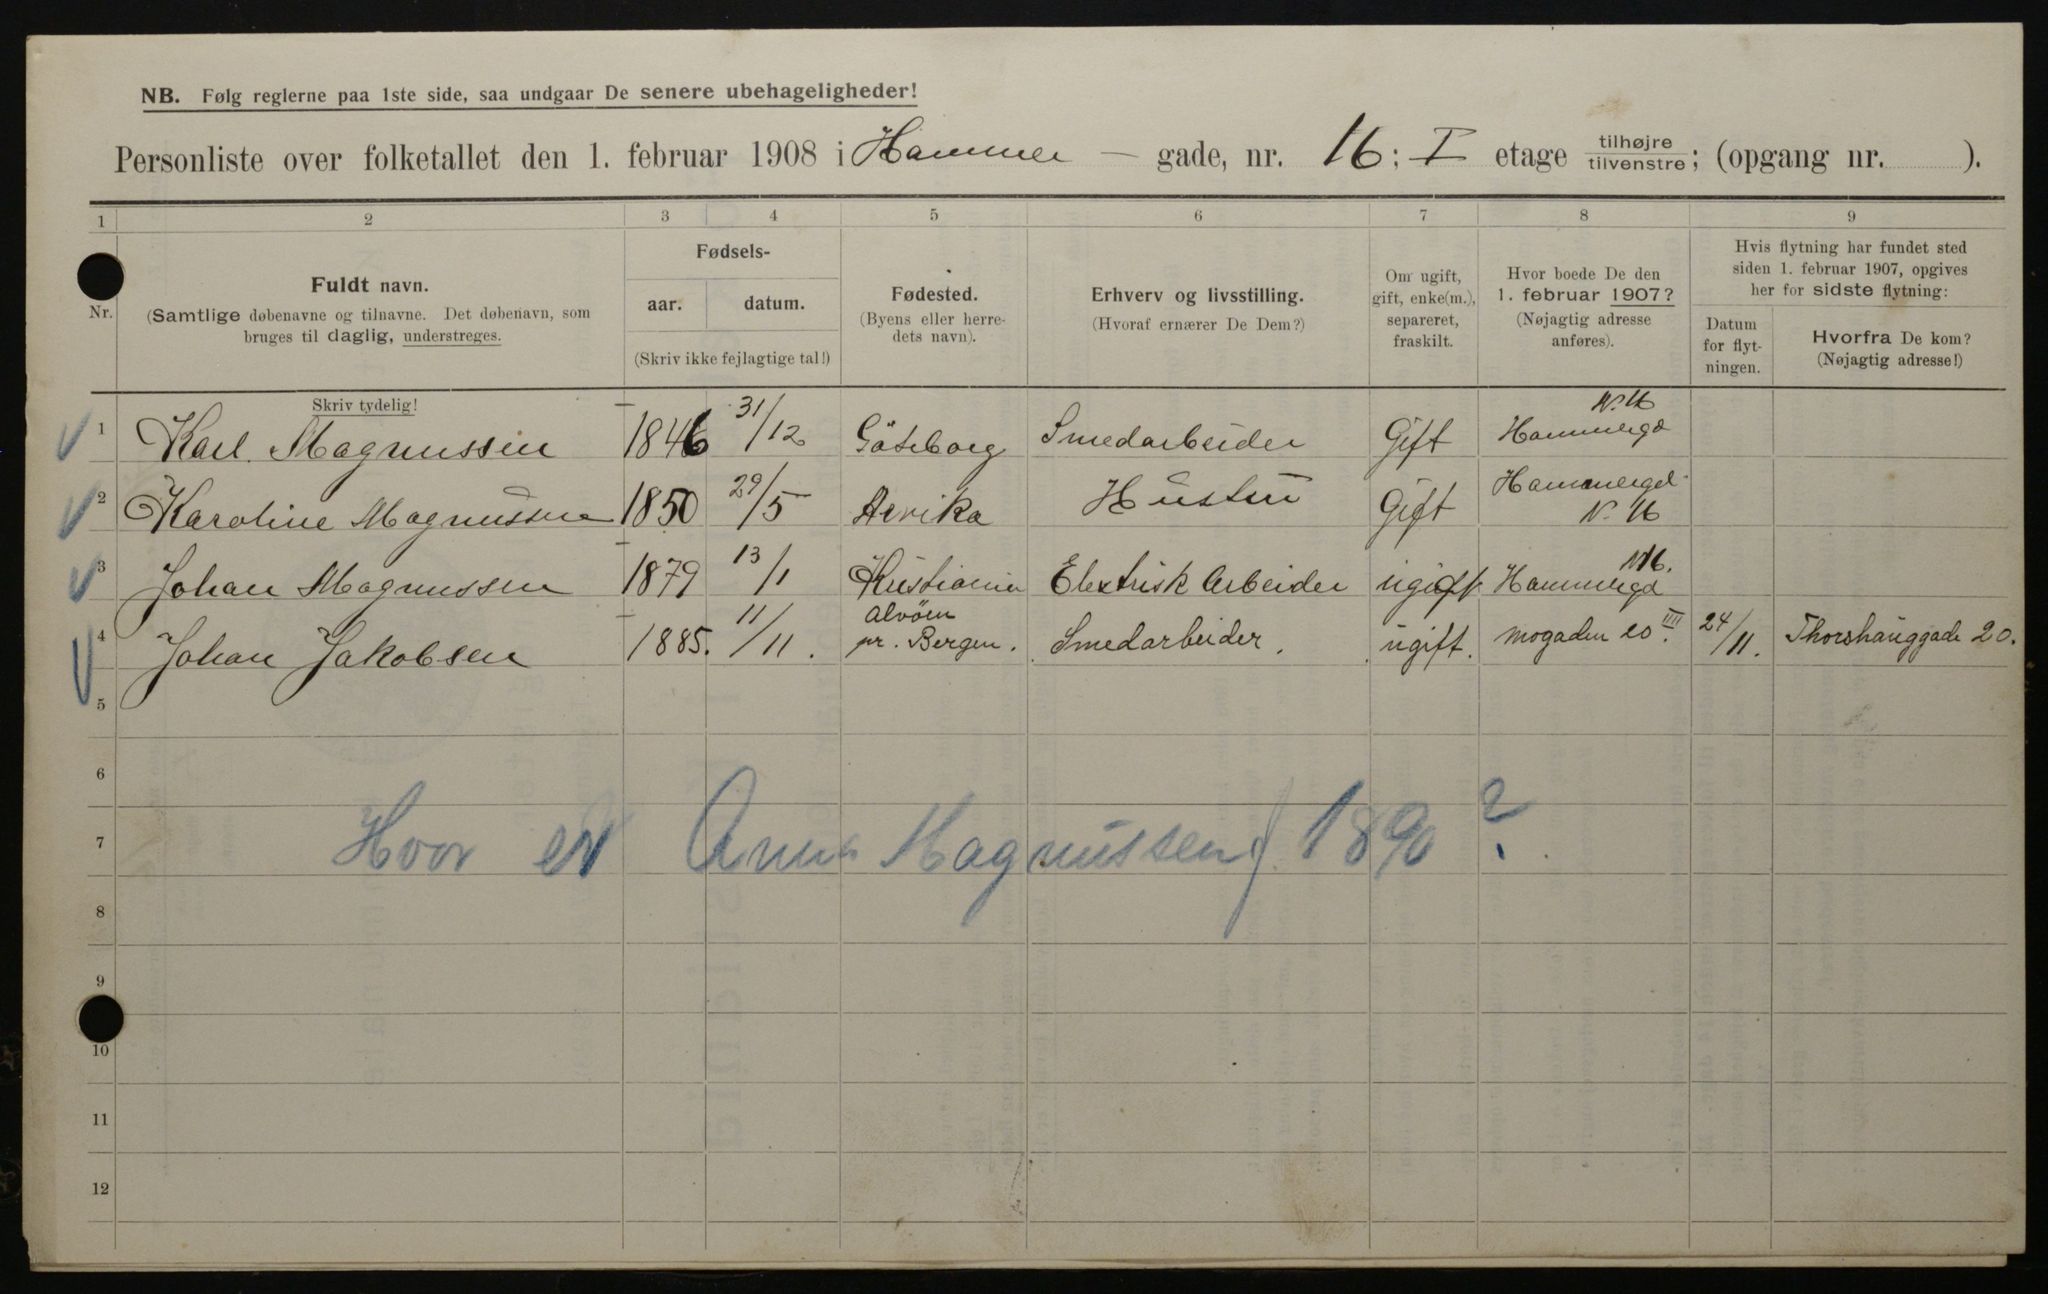 NB. Følg reglerne paa 1ste side, saa undgaar De senere ubehageligheder!
Personliste over folketallet den 1. februar 1908 i Hammer – gade, nr. 16; I etage tilhøjre tilvenstre; (opgang nr. ).
1 2 3 4 5 6 7 8 9
Nr.
Fuldt navn.
(Samtlige døbenavne og tilnavne. Det døbenavn, som
bruges til daglig, understreges.
Skriv tydelig!
Fødsels-
aar. datum.
(Skriv ikke fejlagtige tal!)
Fødested.
(Byens eller herre-
dets navn).
Erhverv og livsstilling.
(Hvoraf ernærer De Dem?)
Om ugift,
gift, enke(m.),
separeret,
fraskilt.
Hvor boede De den
1. februar 1907?
(Nøjagtig adresse
anføres).
Hvis flytning har fundet sted
siden 1. februar 1907, opgives
her for sidste flytning:
Datum
for flyt-
ningen.
Hvorfra De kom?
(Nøjagtig adresse!)
1 Karl Magnussen 1846 31/12 Göteborg Smedarbeider Gift Hammergd N. 16
2 Karoline Magnussen 1850 29/5 Arvika Hustru Gift Hammergd. N. 16
3 Johan Magnussen 1879 13/1 Kristiania Elektrisk Arbeider ugift Hammergd N16.
4 Johan Jakobsen 1885. 11/11. Alvöen pr. Bergen. Smedarbeider. ugift. mogaden 20 III. 24/11. Thorshauggade 20.
5
6
7
Hvor er Anna Magnussen f 1890?
8
9
10
11
12